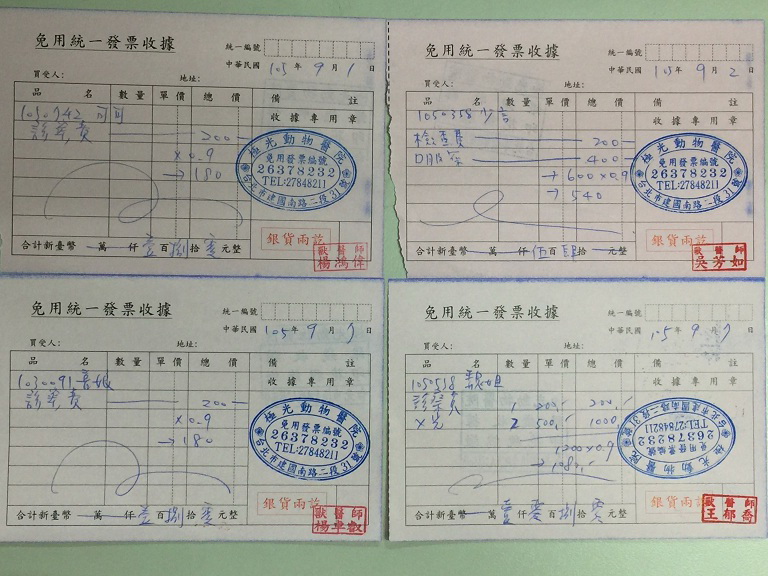 免用統一發票收據
統一編號
中華民國 105年 9月 1日
買受人： 地址：
品名 數量 單價 總價 備註
收據專用章
1050742 可可
診察費 200
×0.9
→180
極光動物醫院
免用發票編號
26378232
TEL:27848211
台北市建國南路二段31號
合計新臺幣 萬 仟 壹百捌拾零元整
銀貨兩訖
獸醫師
楊鴻偉
免用統一發票收據
統一編號
中華民國 105年 9月 2日
買受人： 地址：
品名 數量 單價 總價 備註
收據專用章
1050358
檢查費 200
400
→600×0.9
→540
極光動物醫院
免用發票編號
26378232
TEL:27848211
台北市建國南路二段31號
合計新臺幣 萬 仟 伍百肆拾 元整
銀貨兩訖
獸醫師
吳芳如
免用統一發票收據
統一編號
中華民國 105年 9月 7日
買受人： 地址：
品名 數量 單價 總價 備註
收據專用章
1030091
診察費 200
×0.9
→180
極光動物醫院
免用發票編號
26378232
TEL:27848211
台北市建國南路二段31號
合計新臺幣 萬 仟 壹百捌拾零元整
銀貨兩訖
獸醫師
免用統一發票收據
統一編號
中華民國 105年 9月 7日
買受人： 地址：
品名 數量 單價 總價 備註
收據專用章
1050518
診察費 1 200 200
X光 2 500 1000
1200×0.9
→1080
極光動物醫院
免用發票編號
26378232
TEL:27848211
台北市建國南路二段31號
合計新臺幣 萬 壹仟零百捌拾零元整
銀貨兩訖
獸醫師
王郁喬